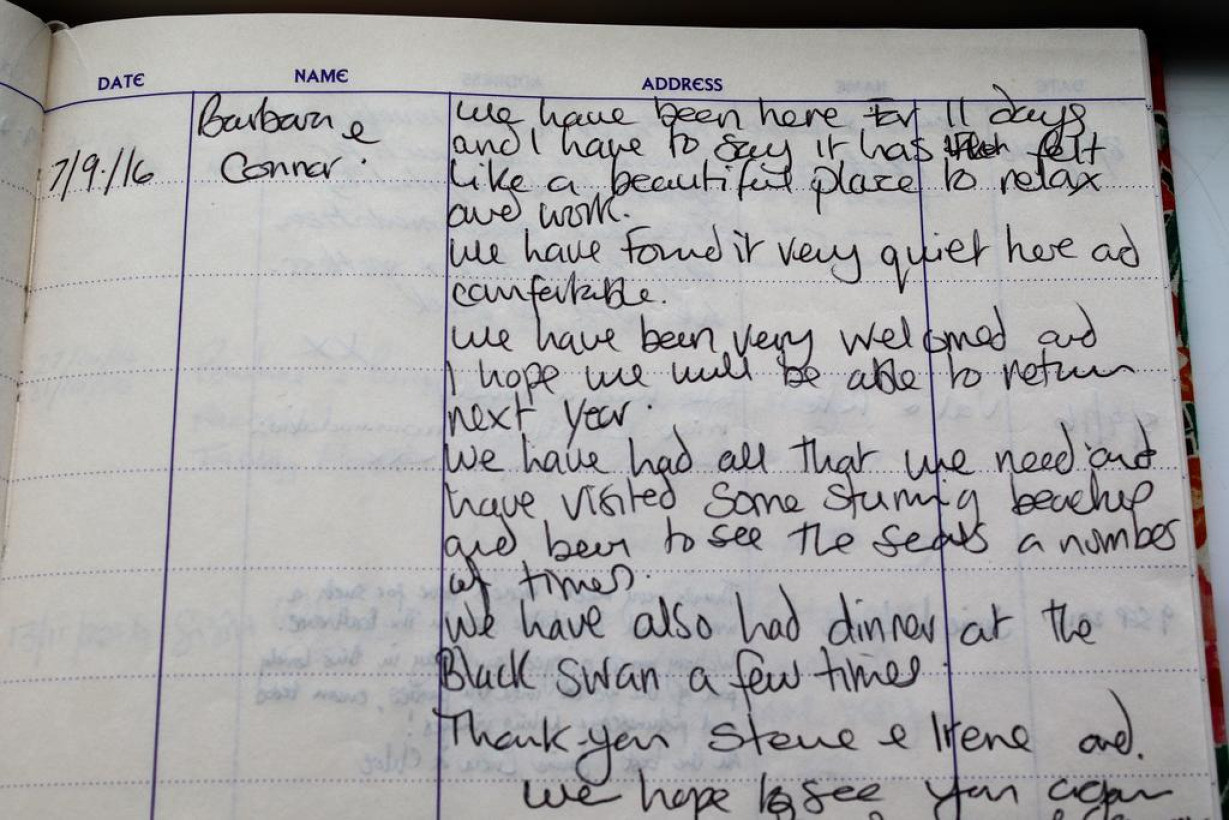 DATE NAME ADDRESS
Barbara e
Connor.
7/9/16
We have been here for 11 days
and I have to say it has felt
like a beautiful place to relax
and work.
We have found it very quiet here ad
comfortable.
We have been very welcomed and
I hope we will be able to return
next year.
We have had all that we need and
have visited some stunning beaches
and been to see the seals a number
of times.
We have also had dinner at the
Black Swan a few times.
Thank-you Steve e Irene and.
We hope to see you again